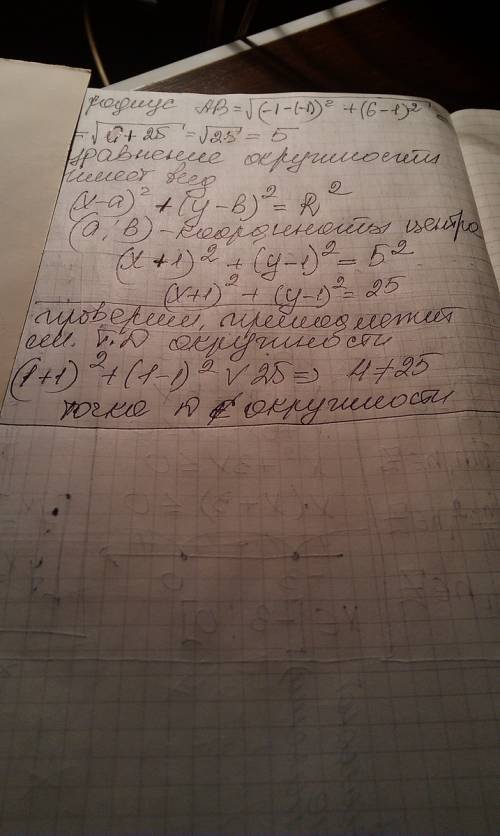 радиус AB = √(-1-(-1))² + (6-1)² =
= √0 + 25 = √25 = 5
уравнение окружности
имеет вид
(x-a)² + (y-в)² = R²
(a; в) - координаты центра
(x+1)² + (y-1)² = 5²
(x+1)² + (y-1)² = 25
проверим, принадлежит
ли т. D окружности
(1+1)² + (1-1)² ∨ 25 => 4≠25
точка D ∉ окружности